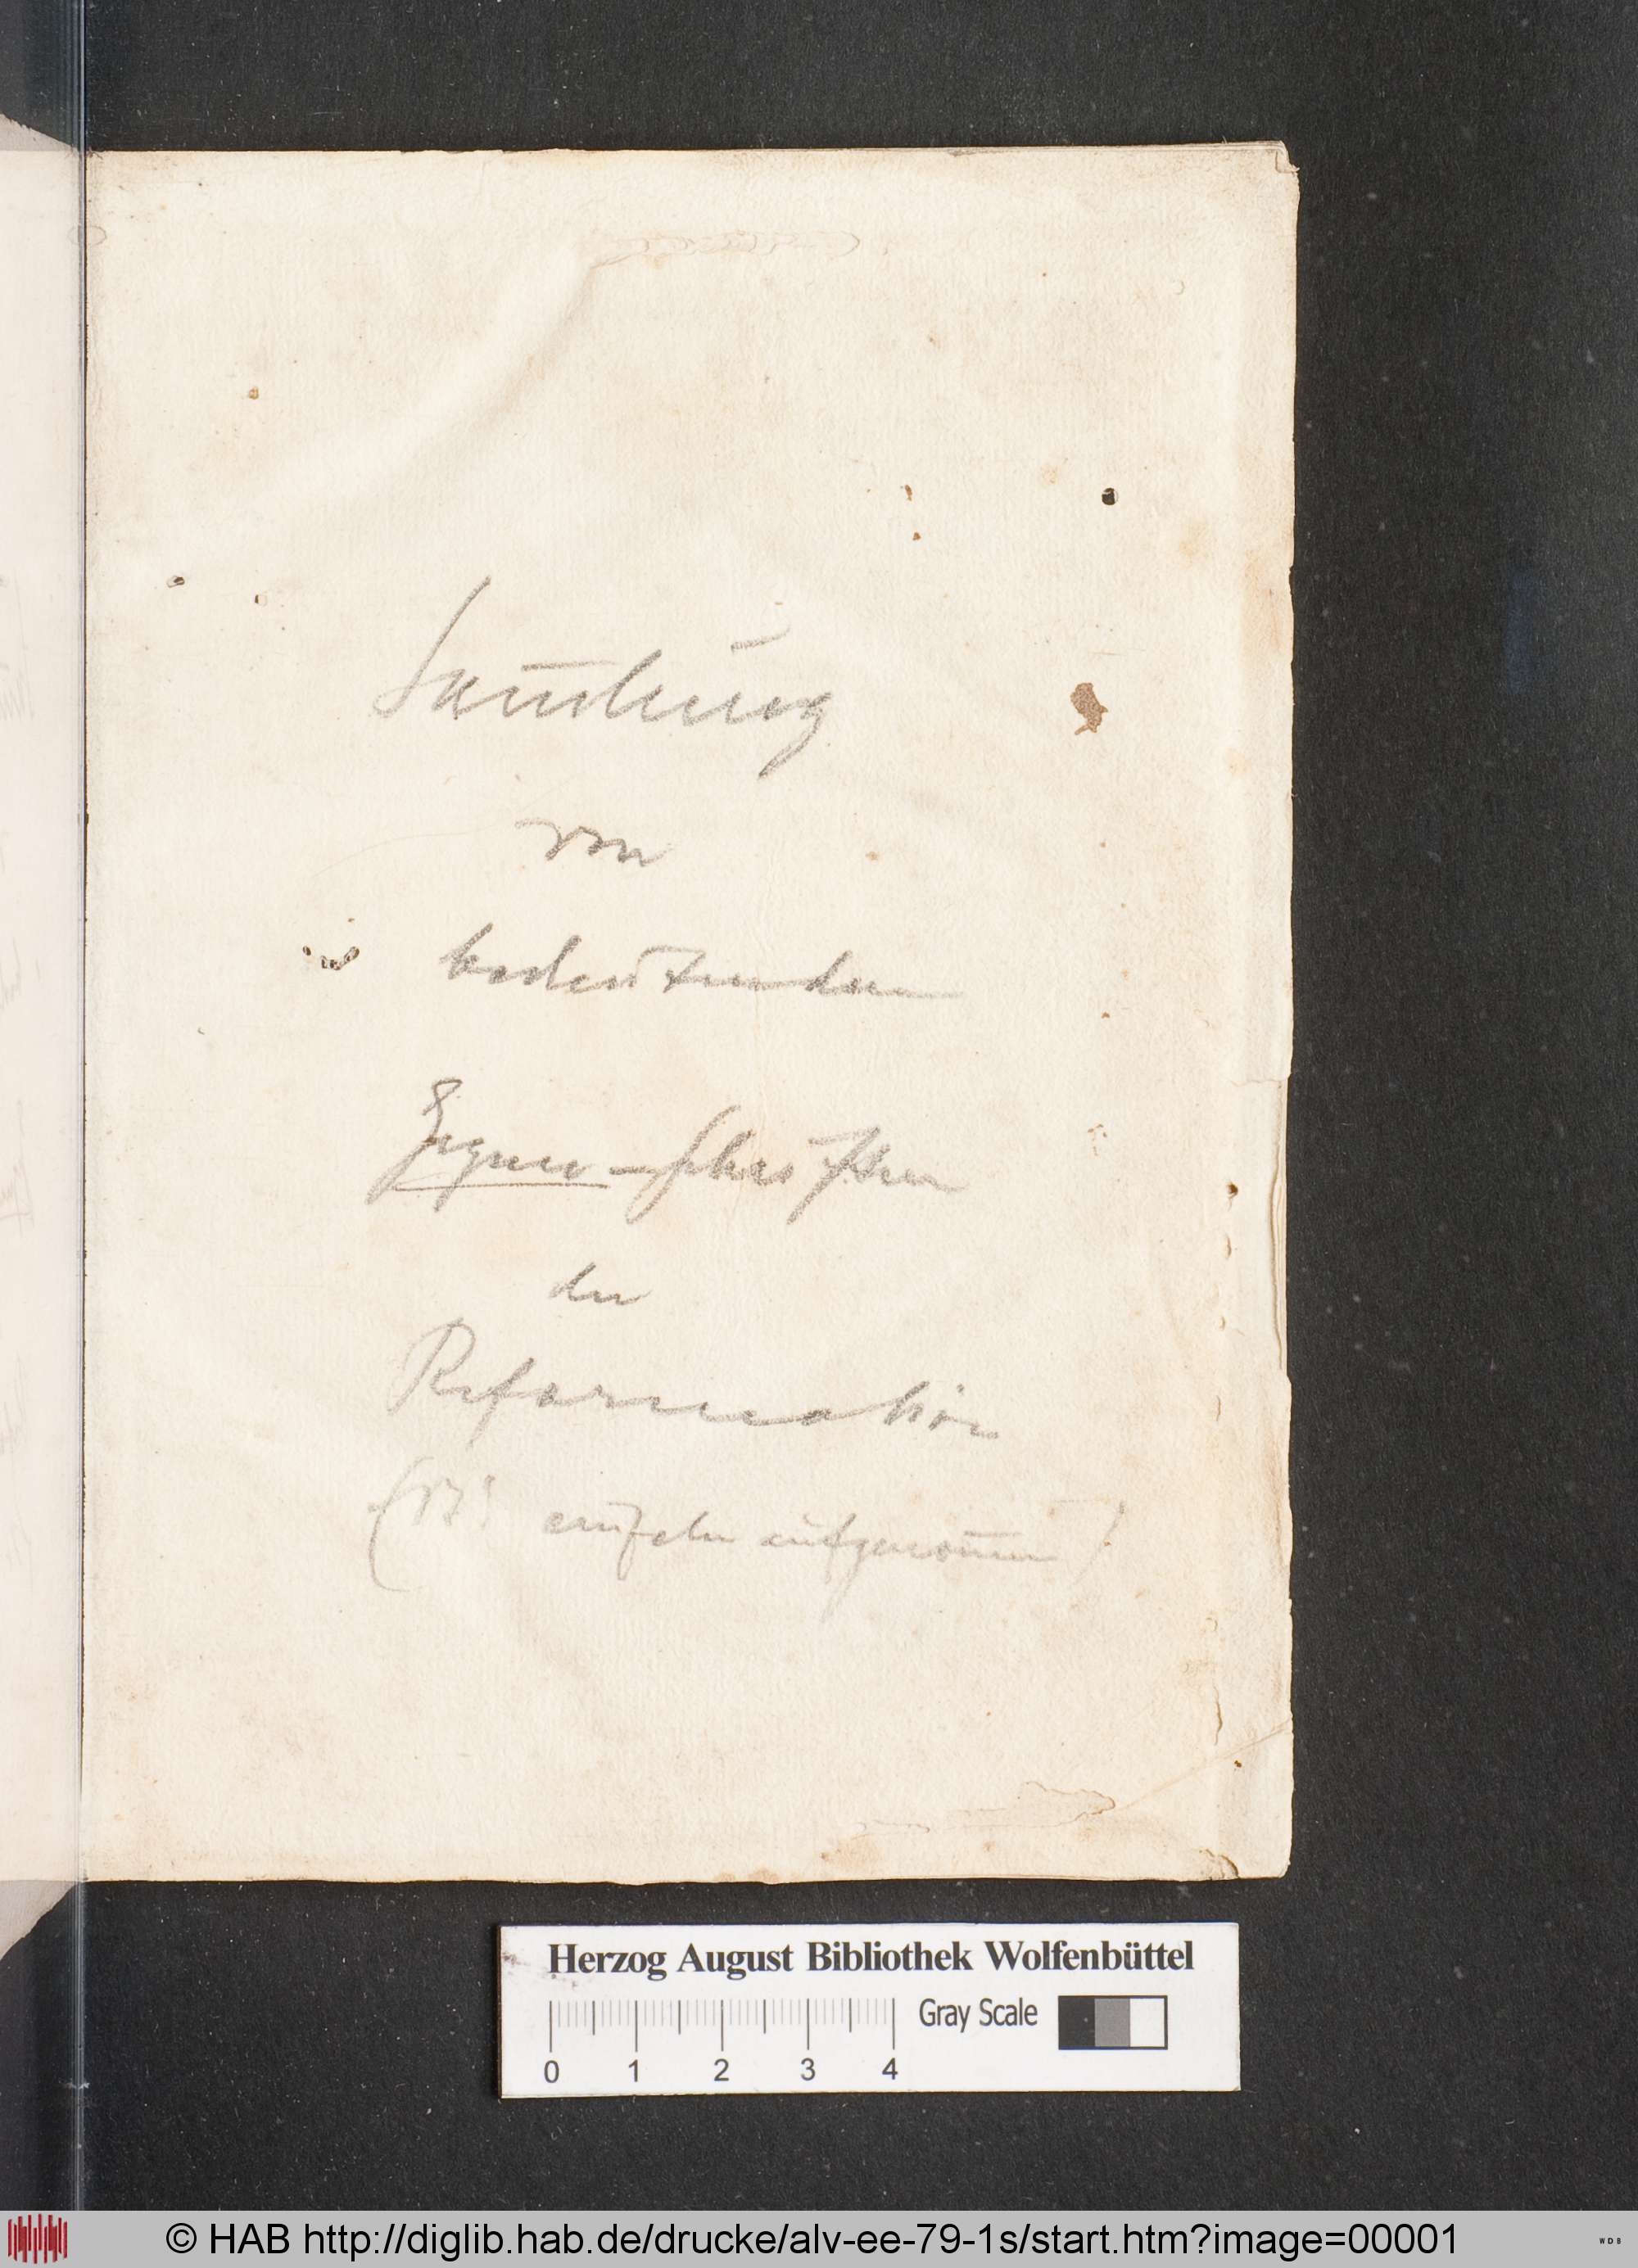 Sam̅lung
von
bedeutenden
Gegner-schriften
der
Reformation
( einzeln aufgenom̅en)
Herzog August Bibliothek Wolfenbüttel
Gray Scale
0 1 2 3 4
© HAB http://diglib.hab.de/drucke/alv-ee-79-1s/start.htm?image=00001
WDB